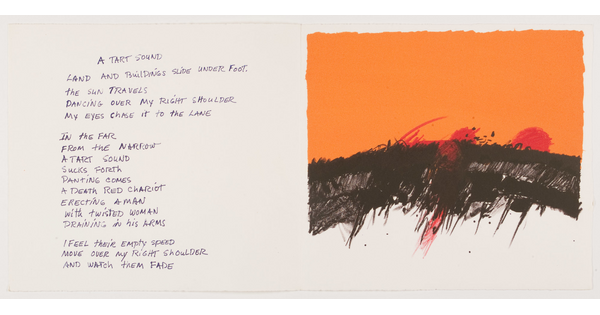 A TART SOUND
LAND AND BUILDINGS SLIDE UNDER FOOT.
the SUN TRAVELS
DANCING OVER MY RIGHT SHOULDER
MY EYES CHASE it to the LANE
IN the FAR
FROM the NARROW
A TART SOUND
SUCKS FORTH
PANTING COMES
A DEATH RED CHARIOT
ERECTING A MAN
With twisted WOMAN
DRAINING IN his ARMS
I FEEL their EMPTY SPEED
MOVE OVER MY RIGHT SHOULDER
AND WATCH THEM FADE